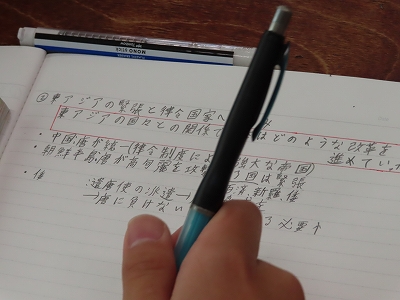 MONO STICK
② 東アジアの緊張と律令国家へ
東アジアの国々との関係で はどのような改革を
進めていった
・中国:唐が統一(律令制度によ 強大な帝国)
・朝鮮半島:唐が高句麗を攻 国は緊張
・倭
:遣唐使の派遣→ 新羅、倭
→唐に負けない
必要↑